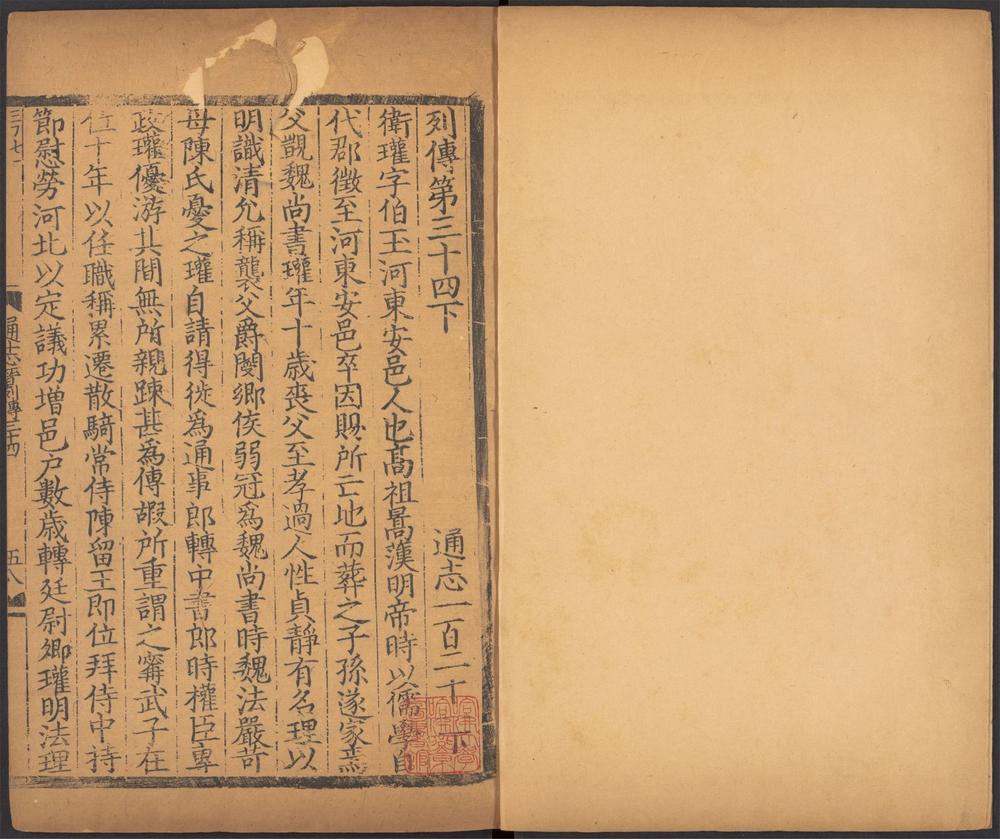 列傳第三十四下　通志一百二十下
衛瓘字伯玉河東安邑人也高祖暠漢明帝時以儒學自
代郡徵至河東安邑卒因賜所亡地而葬之子孫遂家焉
父覬魏尚書瓘年十歲喪父至孝過人性貞靜有名理以
明識清允稱襲父爵閿鄉侯弱冠為魏尚書時魏法嚴苛
母陳氏憂之瓘自請得徙為通事郎轉中書郎時權臣專
政瓘優游其間無所親踈甚為傅嘏所重謂之甯武子在
位十年以任職稱累遷散騎常侍陳留王即位拜侍中持
節慰勞河北以定議功增邑户數歲轉廷尉卿瓘明法理
通志晉列傳三十四　五八